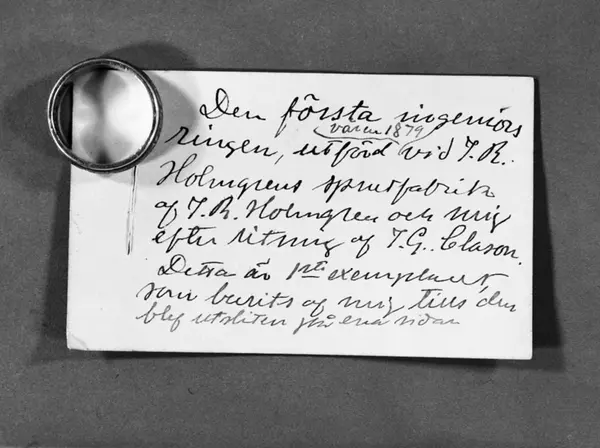 Den första ingeniörs
våren 1879
ringen, utförd vid J. R.
Holmgrens spritfabrik
af J. R. Holmgren och mig
efter ritning af I. G. Clason.
Detta är 1sta exemplaret,
som burits af mig tills den
blef utsliten på ena sidan